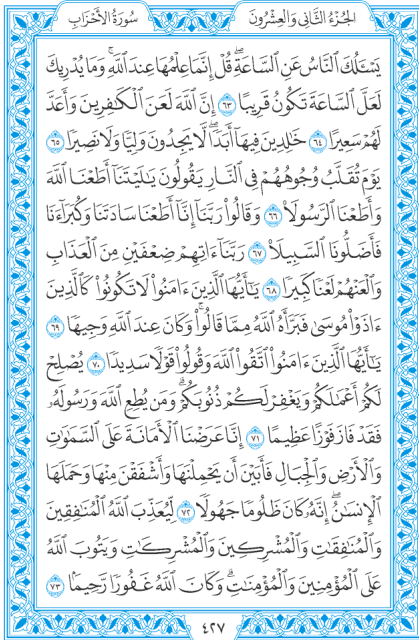 الجُزْءُ الثَّانِي وَالعِشْرُونَ
سُورَةُ الأَحْزَابِ
يَسْـَٔلُكَ ٱلنَّاسُ عَنِ ٱلسَّاعَةِۖ قُلْ إِنَّمَا عِلْمُهَا عِندَ ٱللَّهِۚ وَمَا يُدْرِيكَ
لَعَلَّ ٱلسَّاعَةَ تَكُونُ قَرِيبًا ٦٣ إِنَّ ٱللَّهَ لَعَنَ ٱلْكَٰفِرِينَ وَأَعَدَّ
لَهُمْ سَعِيرًا ٦٤ خَٰلِدِينَ فِيهَآ أَبَدًاۖ لَّا يَجِدُونَ وَلِيًّا وَلَا نَصِيرًا ٦٥
يَوْمَ تُقَلَّبُ وُجُوهُهُمْ فِي ٱلنَّارِ يَقُولُونَ يَٰلَيْتَنَآ أَطَعْنَا ٱللَّهَ
وَأَطَعْنَا ٱلرَّسُولَا۠ ٦٦ وَقَالُوا۟ رَبَّنَآ إِنَّآ أَطَعْنَا سَادَتَنَا وَكُبَرَآءَنَا
فَأَضَلُّونَا ٱلسَّبِيلَا۠ ٦٧ رَبَّنَآ ءَاتِهِمْ ضِعْفَيْنِ مِنَ ٱلْعَذَابِ
وَٱلْعَنْهُمْ لَعْنًا كَبِيرًا ٦٨ يَٰٓأَيُّهَا ٱلَّذِينَ ءَامَنُوا۟ لَا تَكُونُوا۟ كَٱلَّذِينَ
ءَاذَوْا۟ مُوسَىٰ فَبَرَّأَهُ ٱللَّهُ مِمَّا قَالُوا۟ۚ وَكَانَ عِندَ ٱللَّهِ وَجِيهًا ٦٩
يَٰٓأَيُّهَا ٱلَّذِينَ ءَامَنُوا۟ ٱتَّقُوا۟ ٱللَّهَ وَقُولُوا۟ قَوْلًا سَدِيدًا ٧٠ يُصْلِحْ
لَكُمْ أَعْمَٰلَكُمْ وَيَغْفِرْ لَكُمْ ذُنُوبَكُمْۗ وَمَن يُطِعِ ٱللَّهَ وَرَسُولَهُۥ
فَقَدْ فَازَ فَوْزًا عَظِيمًا ٧١ إِنَّا عَرَضْنَا ٱلْأَمَانَةَ عَلَى ٱلسَّمَٰوَٰتِ
وَٱلْأَرْضِ وَٱلْجِبَالِ فَأَبَيْنَ أَن يَحْمِلْنَهَا وَأَشْفَقْنَ مِنْهَا وَحَمَلَهَا
ٱلْإِنسَٰنُۖ إِنَّهُۥ كَانَ ظَلُومًا جَهُولًا ٧٢ لِّيُعَذِّبَ ٱللَّهُ ٱلْمُنَٰفِقِينَ
وَٱلْمُنَٰفِقَٰتِ وَٱلْمُشْرِكِينَ وَٱلْمُشْرِكَٰتِ وَيَتُوبَ ٱللَّهُ
عَلَى ٱلْمُؤْمِنِينَ وَٱلْمُؤْمِنَٰتِۗ وَكَانَ ٱللَّهُ غَفُورًا رَّحِيمًۢا ٧٣
٤٢٧